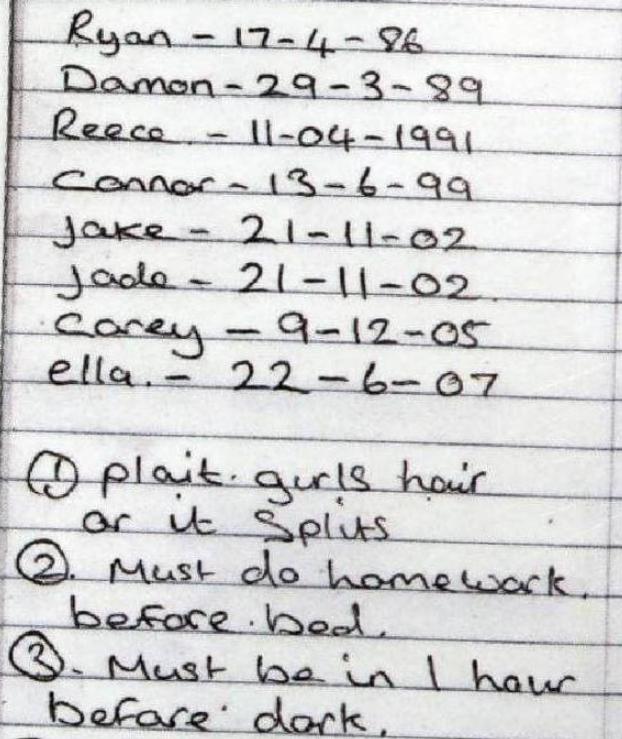 Ryan - 17-4-86
Damon - 29-3-89
Reece. - 11-04-1991
Connor - 13-6-99
Jake - 21-11-02
Jade - 21-11-02.
Carey - 9-12-05
ella. - 22-6-07
① plait. gurls hair
or it Splits
②. Must do homework.
before. bed.
③. Must be in 1 hour
before dark.